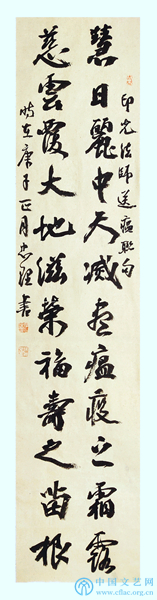 印光法師送瘟聯句
慧日麗中天滅盡瘟疫之霜露
慈雲覆大地滋榮福壽之苗根
時在庚子正月書
中国文艺网
www.cflac.org.cn